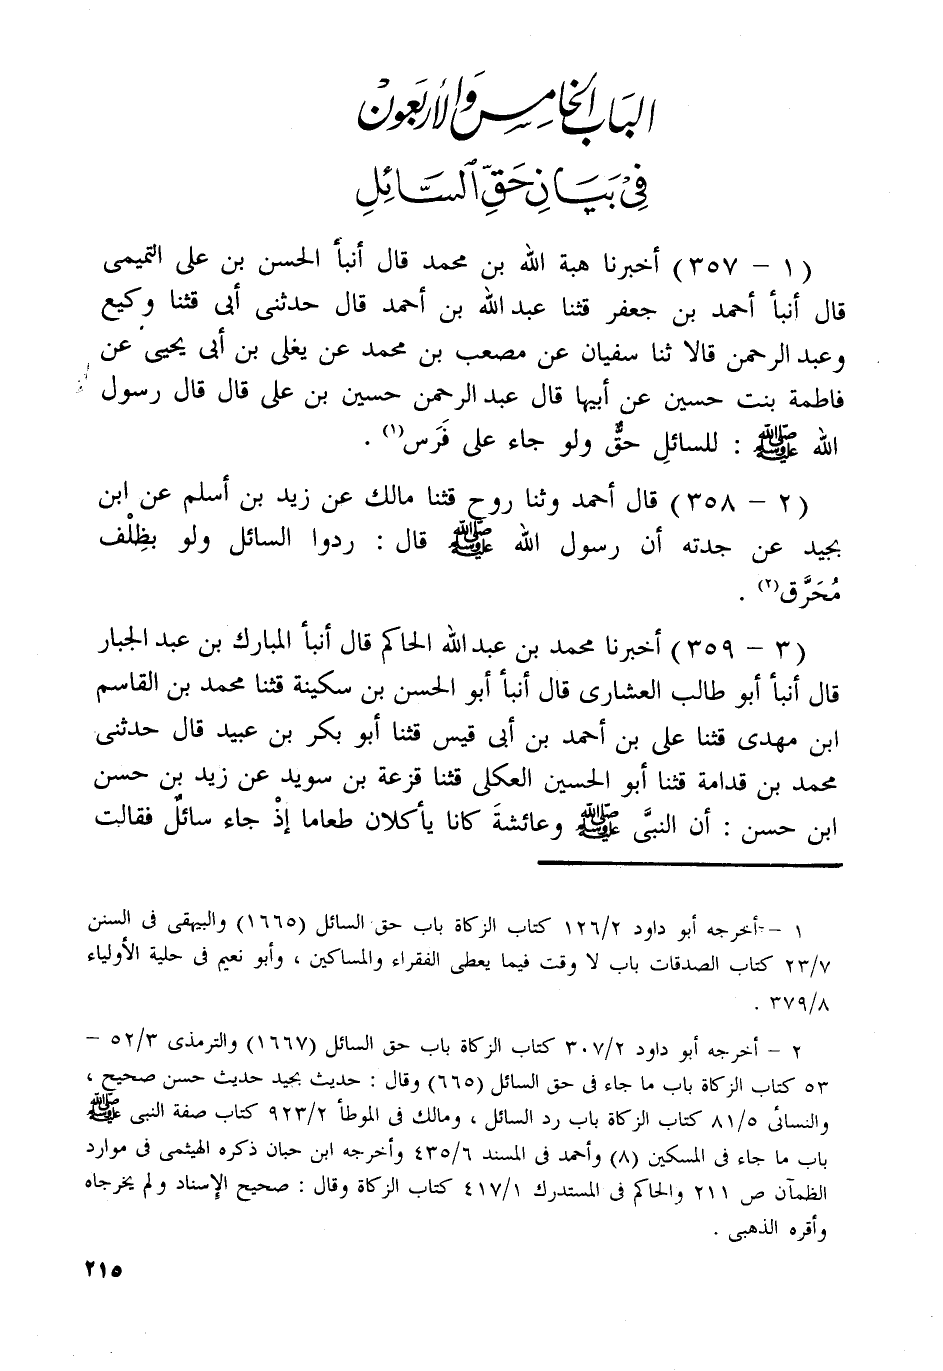 الباب الخامس والأربعون
في بيان حق السائل
(١ - ٣٥٧) أخبرنا هبة الله بن محمد قال أنبأ الحسن بن على التميمى
قال أنبأ أحمد بن جعفر قثنا عبد الله بن أحمد قال حدثنى أبى قثنا وكيع
وعبد الرحمن قالا ثنا سفيان عن مصعب بن محمد عن يغلى بن أبى يحيىٰ عن
فاطمة بنت حسين عن أبيها قال عبد الرحمن حسين بن على قال قال رسول
الله ﷺ : للسائلِ حقٌّ ولو جاء على فَرَس(١) .
(٢ - ٣٥٨) قال أحمد وثنا روح قثنا مالك عن زيد بن أسلم عن ابن
بجيد عن جدته أن رسول الله ﷺ قال : ردوا السائل ولو بظِلْف
مُحَرَّق(٢) .
(٣ - ٣٥٩) أخبرنا محمد بن عبد الله الحاكم قال أنبأ المبارك بن عبد الجبار
قال أنبأ أبو طالب العشارى قال أنبأ أبو الحسن بن سكينة قثنا محمد بن القاسم
ابن مهدى قثنا على بن أحمد بن أبى قيس قثنا أبو بكر بن عبيد قال حدثنى
محمد بن قدامة قثنا أبو الحسين العكلى قثنا قزعة بن سويد عن زيد بن حسن
ابن حسن : أن النبىَّ ﷺ وعائشةَ كانا يأكلان طعاما إذْ جاء سائلٌ فقالت
١ - أخرجه أبو داود ١٢٦/٢ كتاب الزكاة باب حق السائل (١٦٦٥) والبيهقى فى السنن
٢٣/٧ كتاب الصدقات باب لا وقت فيما يعطى الفقراء والمساكين ، وأبو نعيم فى حلية الأولياء
٣٧٩/٨ .
٢ - أخرجه أبو داود ٣٠٧/٢ كتاب الزكاة باب حق السائل (١٦٦٧) والترمذى ٥٢/٣ -
٥٣ كتاب الزكاة باب ما جاء فى حق السائل (٦٦٥) وقال : حديث بجيد حديث حسن صحيح ،
والنسائى ٨١/٥ كتاب الزكاة باب رد السائل ، ومالك فى الموطأ ٩٢٣/٢ كتاب صفة النبى ﷺ
باب ما جاء فى المسكين (٨) وأحمد فى المسند ٤٣٥/٦ وأخرجه ابن حبان ذكره الهيثمى فى موارد
الظمآن ص ٢١١ والحاكم فى المستدرك ٤١٧/١ كتاب الزكاة وقال : صحيح الإسناد ولم يخرجاه
وأقره الذهبى .
٢١٥